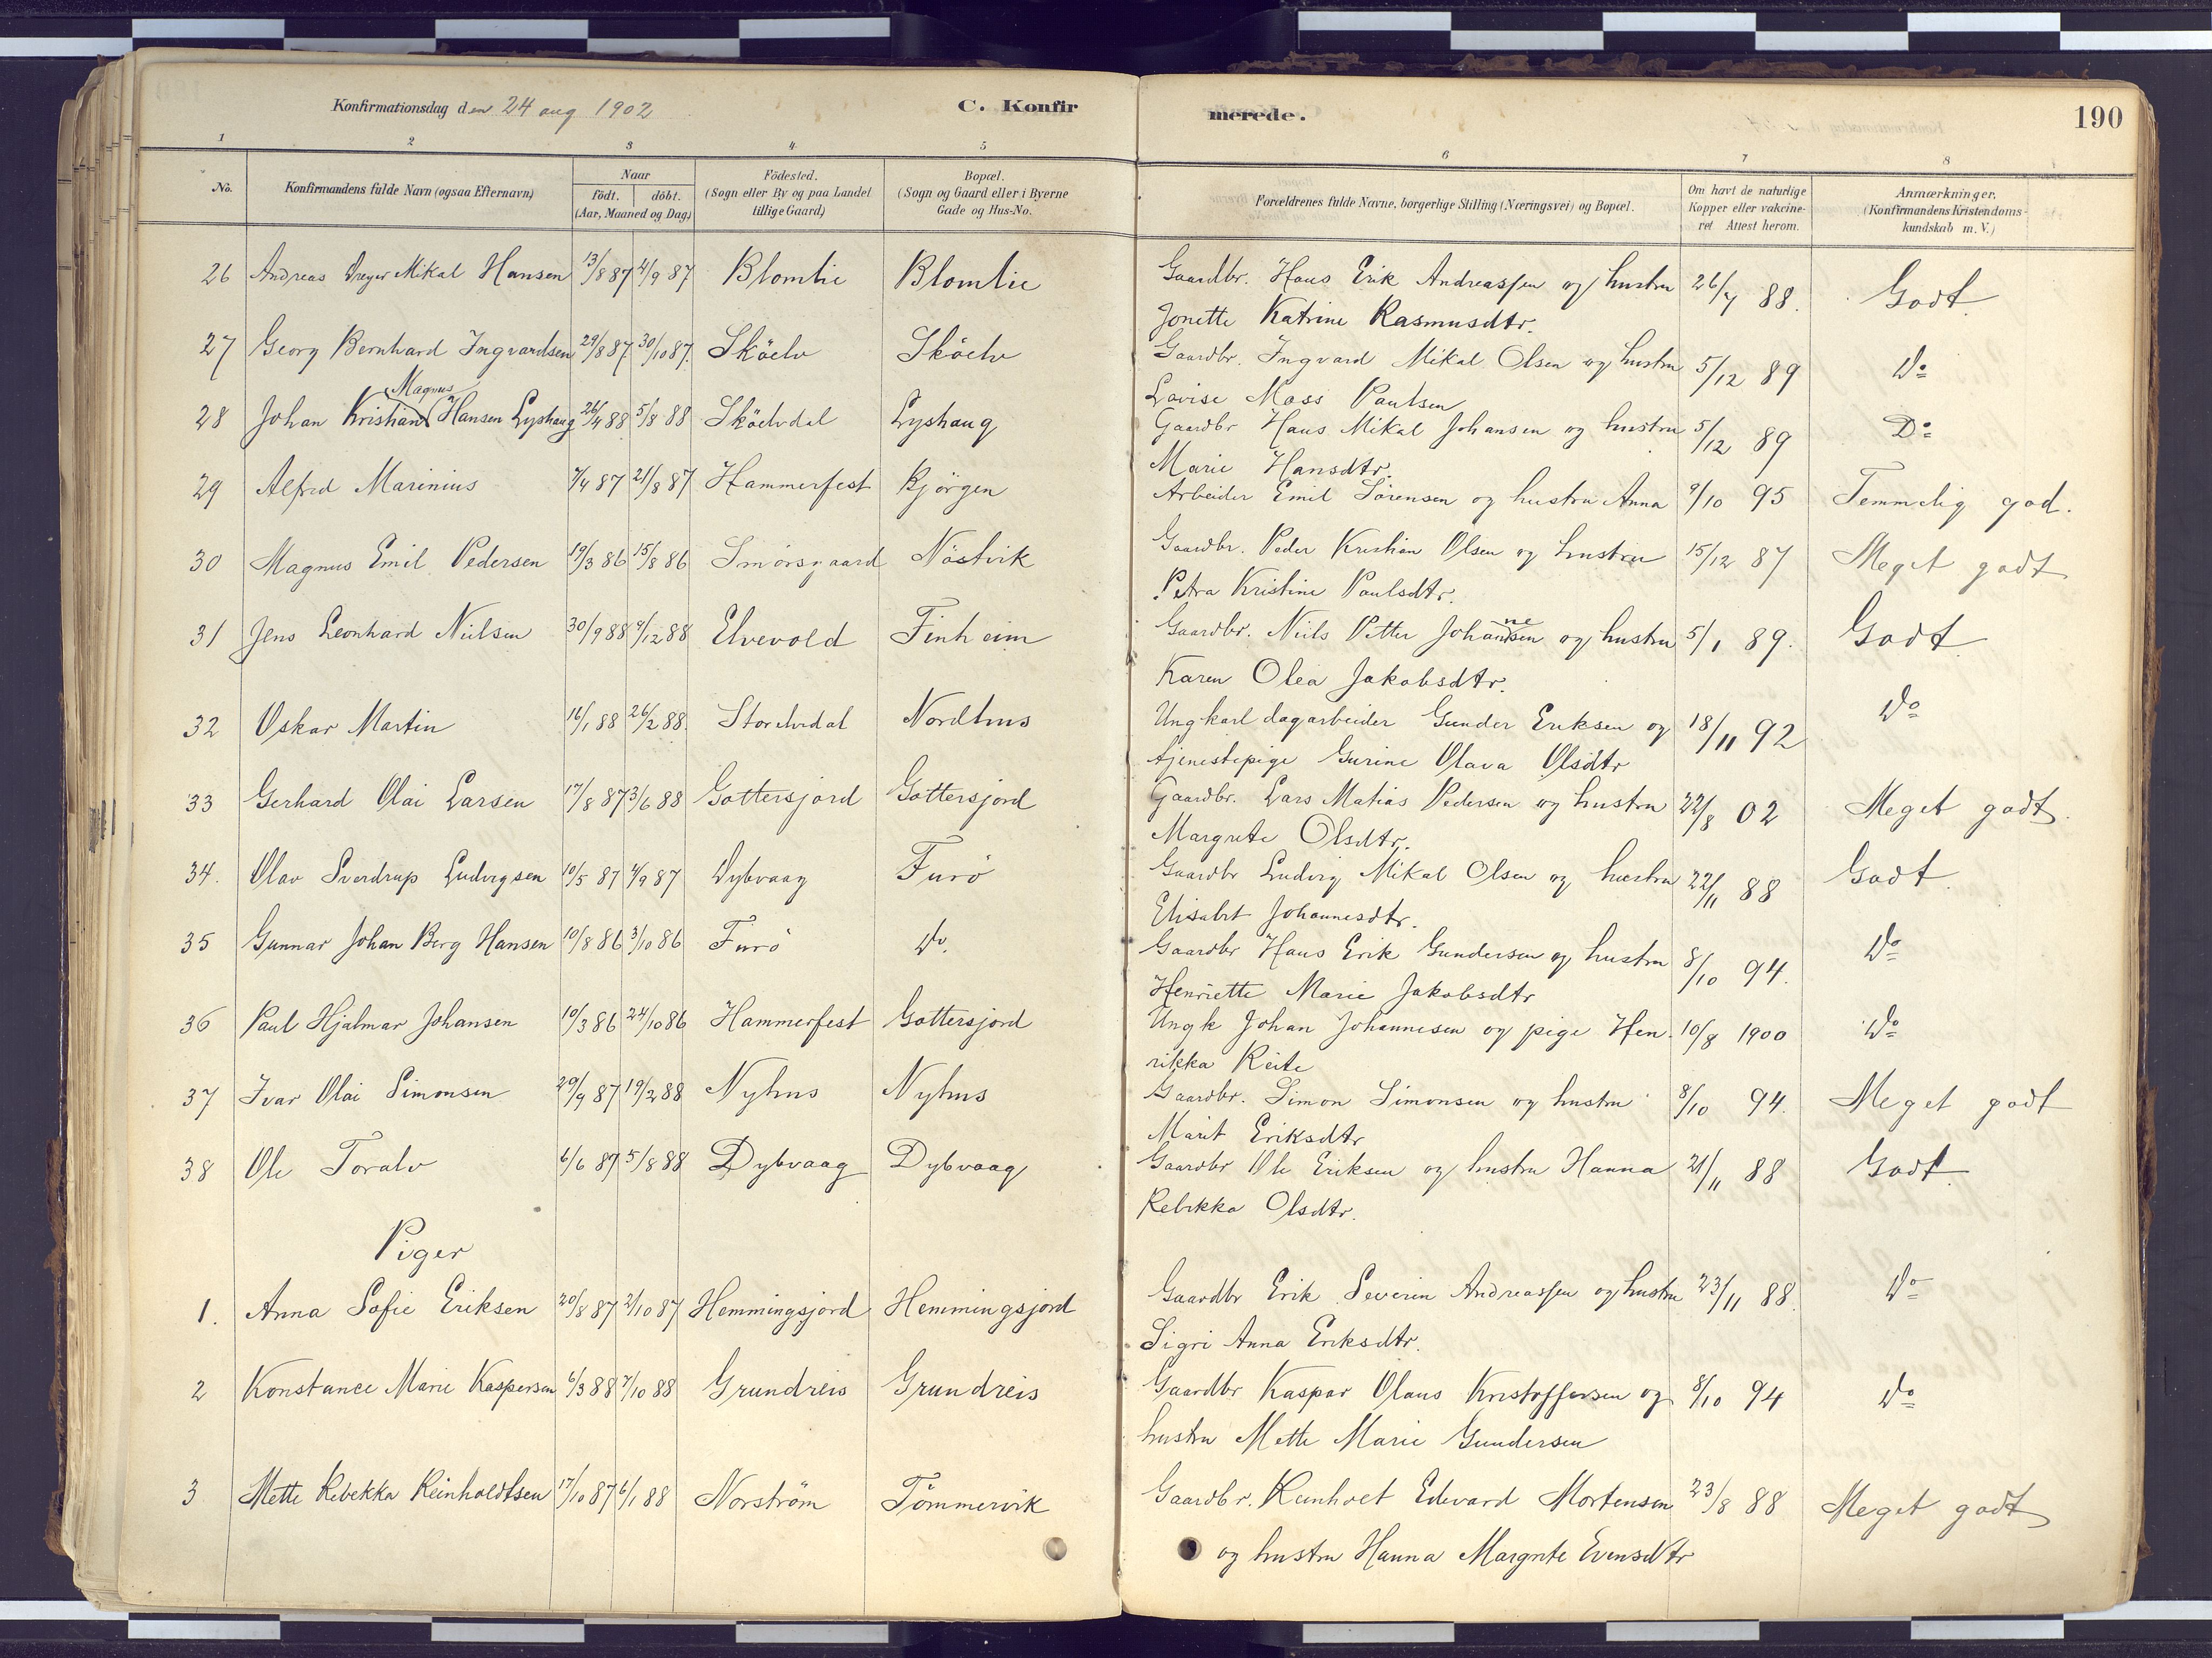 Konfirmationsdag den 24 aug 1902
C. Konfirmerede.
190
1 2 3 4 5 6 7 8
No.
Konfirmandens fulde Navn (ogsaa Efternavn)
Naar födt. döbt. (Aar, Maaned og Dag)
Födested. (Sogn eller By og paa Landet tillige Gaard)
Bopæl. (Sogn og Gaard eller i Byerne Gade og Hus-No.
Forældrenes fulde Navne, borgerlige Stilling (Næringsvei) og Bopæl.
Om havt de naturlige Kopper eller vakcineret Attest herom.
Anmærkninger. (Konfirmandens Kristendomskundskab m. V.)
26 Andreas Dreyer Mikal Hansen 13/8 87 4/9 87 Blomlie Blomlie Gaardbr. Hans Erik Andreassen og hustru 26/7 88. Godt.
Jonette Katrine Rasmusdtr.
27 Georg Bernhard Ingvardsen 29/8 87 30/10 87. Sköelv Sköelv Gaardbr. Ingvard Mikal Olsen og hustru 5/12 89 Do
Lovise Moss Paulsen
Magnus
28 Johan Kristian Hansen Lyshaug 26/4 88 5/8 88 Sköelvdal Lyshaug Gaardbr Hans Mikal Johansen og hustru 5/12 89 Do
Marie Hansdtr.
29 Alfred Marinius 7/4 87 21/8 87 Hammerfest Björgen Arbeider Emil Sörensen og hustru Anna 9/10 95 Temmelig god.
30 Magnus Emil Pedersen 19/3 86 15/8 86 Smörsgaard Nöstvik Gaardbr. Peder Kristian Olsen og hustru 15/12 87 Meget godt
Petra Kristine Paulsdtr.
31 Jens Leonhard Nilsen 30/9 88 9/12 88 Elvevold Finheim Gaardbr. Nils Petter Johannesen og hustru 5/1 89. Godt
Karen Olea Jakobsdtr.
32 Oskar Martin 16/1 88 26/2 88. Storelvdal Nordhus Ungkarl dagarbeider Gunder Eriksen og 18/11 92 Do
tjenestepige Gurine Olava Olsdtr
33 Gerhard Olai Larsen 17/8 87 3/6 88 Gottersjord Gottersjord Gaardbr. Lars Matias Pedersen og hustru 22/8 02 Meget godt.
Margrete Olsdtr.
34. Olav Sverdrup Ludvigsen 10/5 87 4/9 87 Dybvaag Furö Gaardbr Ludvig Mikal Olsen og hustru 22/11 88 Godt.
Elisabet Johannesdtr.
35 Gunnar Johan Berg Hansen 10/8 86 3/10 86 Furö Do. Gaardbr Hans Erik Gundersen og hustru 8/10 94. Do
Henriette Marie Jakobsdtr
36 Paul Hjalmar Johansen 10/3 86 24/10 86 Hammerfest Gottersjord Ungk Johan Johannesen og pige Hen- 10/8 1900 Do
rikka Reite
37 Ivar Olai Simonsen 29/9 87 19/2 88 Nyhus Nyhus Gaardbr. Simon Simonsen og hustru 8/10 94. Meget godt
Marit Eriksdtr
38 Ole Toralv 6/6 87 5/8 88 Dybvaag Dybvaag Gaardbr Ole Eriksen og hustru Hanna 21/11 88 Godt.
Rebekka Olsdtr.
Piger
1. Anna Sofie Eriksen 20/8 87 2/10 87 Hemmingsjord Hemmingsjord Gaardbr Erik Severin Andreassen og hustru 23/11 88. Do
Sigri Anna Eriksdtr.
2 Konstance Marie Kaspersen 6/3 88 7/10 88 Grundreis Grundreis Gaardbr Kaspar Olaus Kristoffersen og 8/10 94 Do
hustru Mette Marie Gundersen
3 Mette Rebekka Reinholdtsen 17/10 87 6/1 88 Norström Tömmervik Gaardbr. Reinholt Edevard Mortensen 23/8 88 Meget godt
og hustru Hanna Margrete Evensdtr